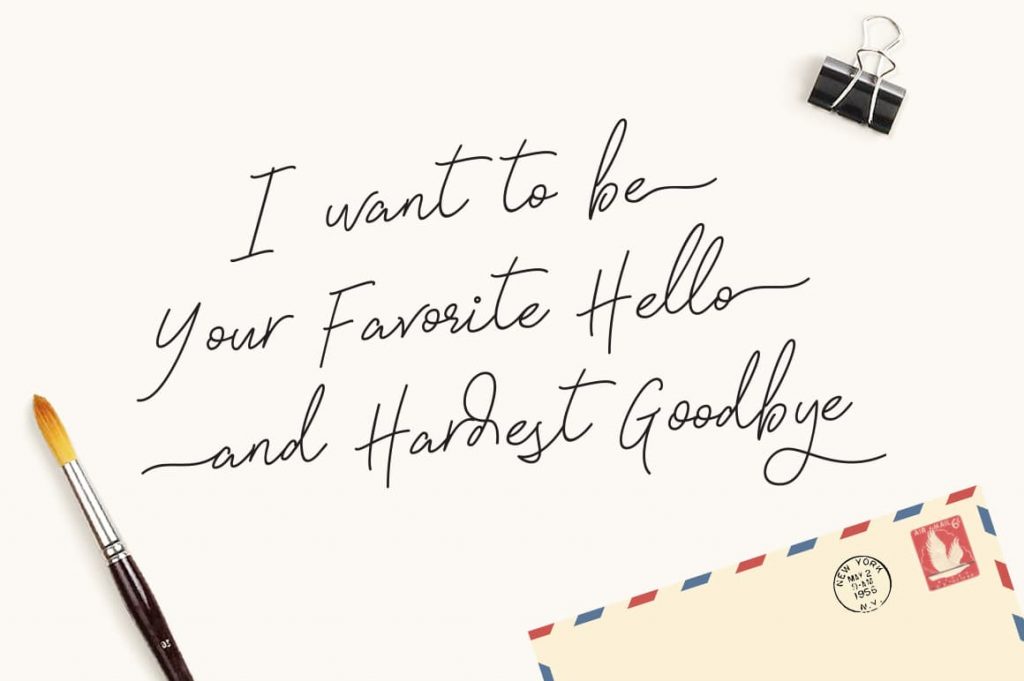 I want to be
Your Favorite Hello
and Hardest Goodbye
AIR MAIL 6¢
NEW YORK
MAY 2
9-AM
1956
N.Y.